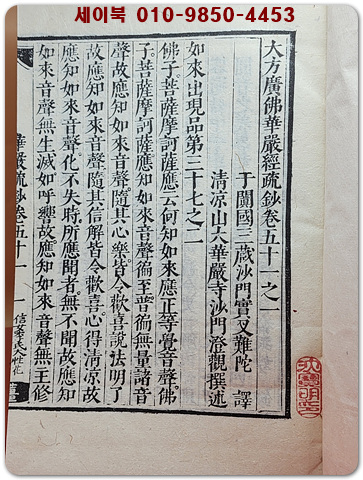 세이북 010-9850-4453
大方廣佛華嚴經疏鈔卷五十一之一
于闐國三藏沙門實叉難陀 譯
清涼山大華嚴寺沙門澄觀撰述
如來出現品第三十七之二
佛子菩薩摩訶薩應云何知如來應正等覺音聲佛
子菩薩摩訶薩應知如來音聲徧至普徧無量諸音
聲故應知如來音聲隨其心樂皆令歡喜說法明了
故應知如來音聲隨其信解皆令歡喜心得清涼故
應知如來音聲化不失時所應聞者無不聞故應知
如來音聲無生滅如呼響故應知如來音聲無主修
華嚴疏鈔卷五十一 一